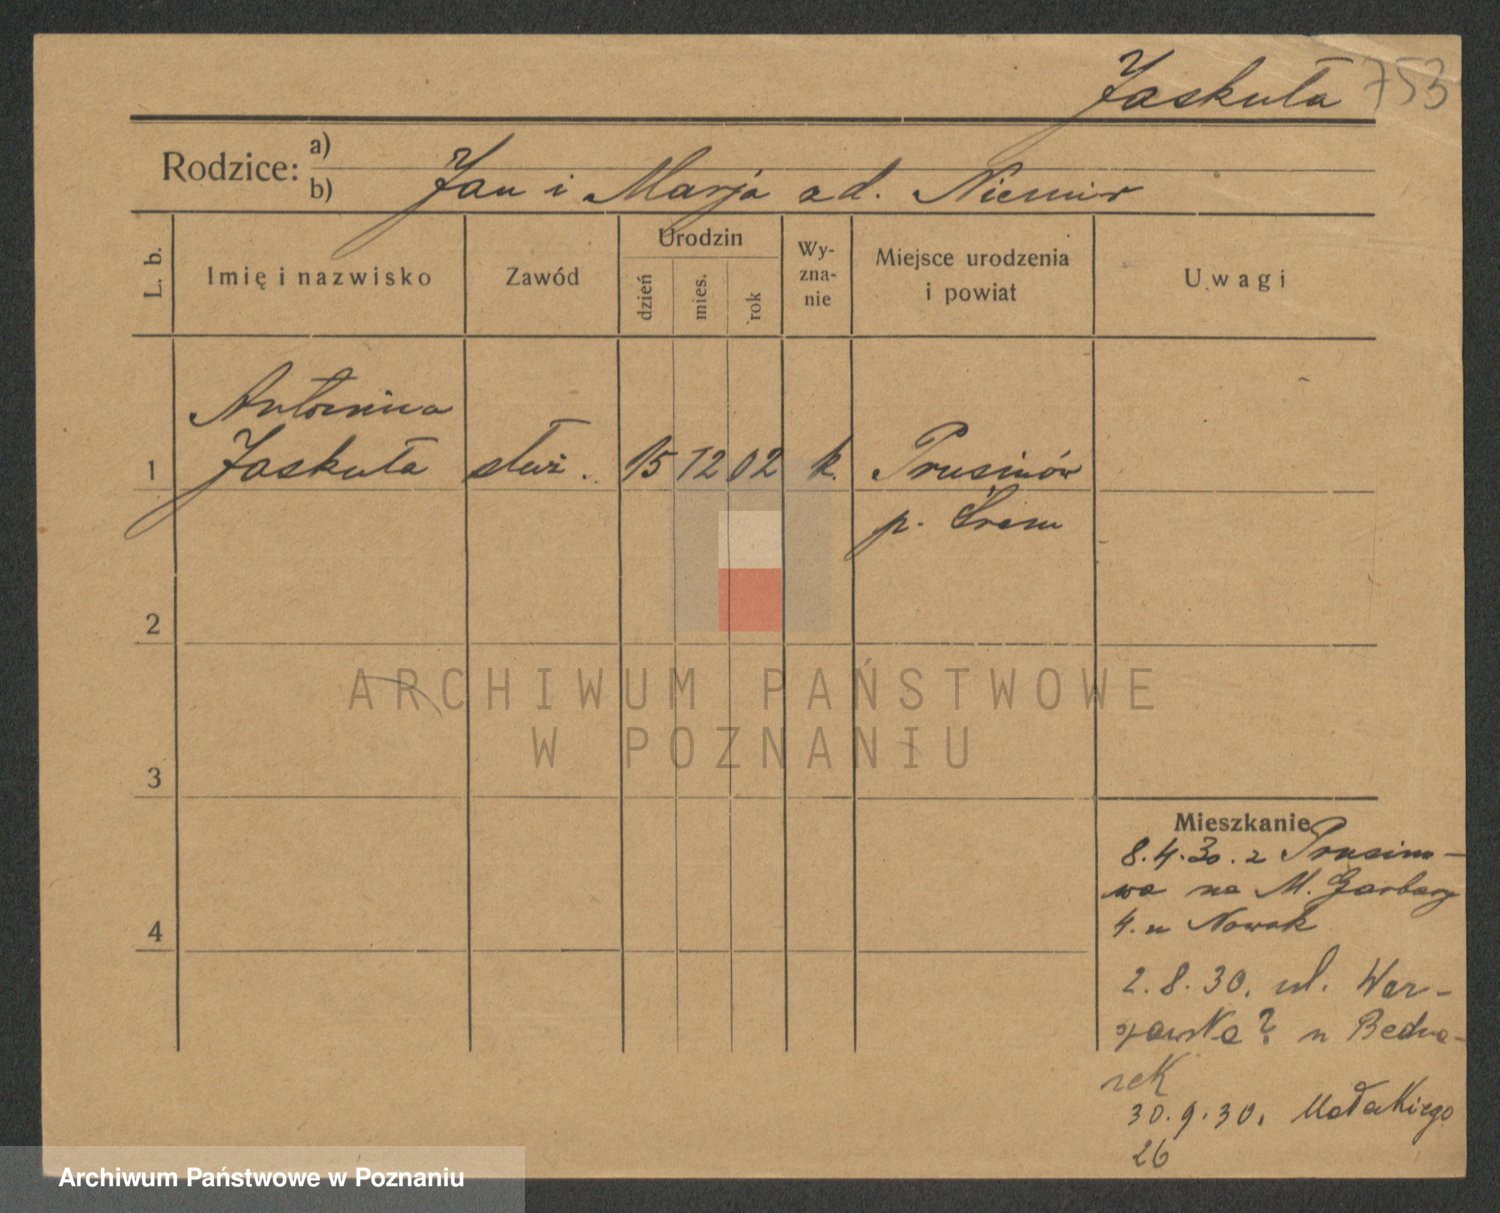 Jaskuła 753
Rodzice: a)
b) Jan i Marja od. Niemir
L. b.
Imię i nazwisko
Zawód
Urodzin
dzień
mies.
rok
Wy-
zna-
nie
Miejsce urodzenia
i powiat
Uwagi
Antonina
1 Jaskuła służ. 15 12 02 k. Prusinów
p. Śrem
2
3
4
ARCHIWUM PAŃSTWOWE
W POZNANIU
Mieszkanie
8.4.30. z Prusino-
wa na M. Garbary
4. u Nowak
2.8.30. ul. War-
szawska ? u Bedna-
rek
30.9.30. Małeckiego
26
Archiwum Państwowe w Poznaniu